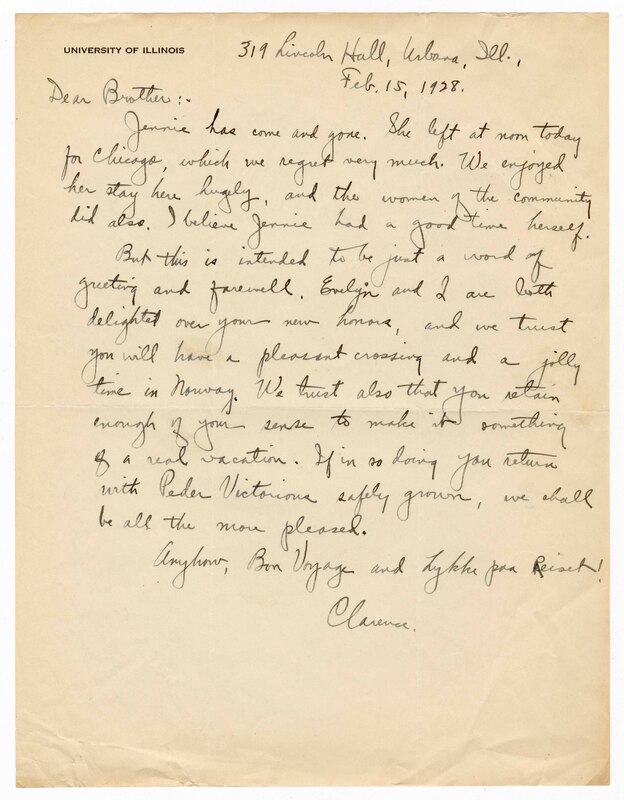 UNIVERSITY OF ILLINOIS
319 Lincoln Hall, Urbana, Ill.,
Feb. 15, 1928.
Dear Brother:-
Jennie has come and gone. She left at noon today
for Chicago, which we regret very much. We enjoyed
her stay here hugely, and the women of the community
did also. I believe Jennie had a good time herself.
But this is intended to be just a word of
greeting and farewell. Evelyn and I are both
delighted over your new honors, and we trust
you will have a pleasant crossing and a jolly
time in Norway. We trust also that you retain
enough of your sense to make it something
of a real vacation. If in so doing you return
with Peder Victorious safely grown, we shall
be all the more pleased.
Anyhow, Bon Voyage and Lykke paa Reisen!
Clarence.